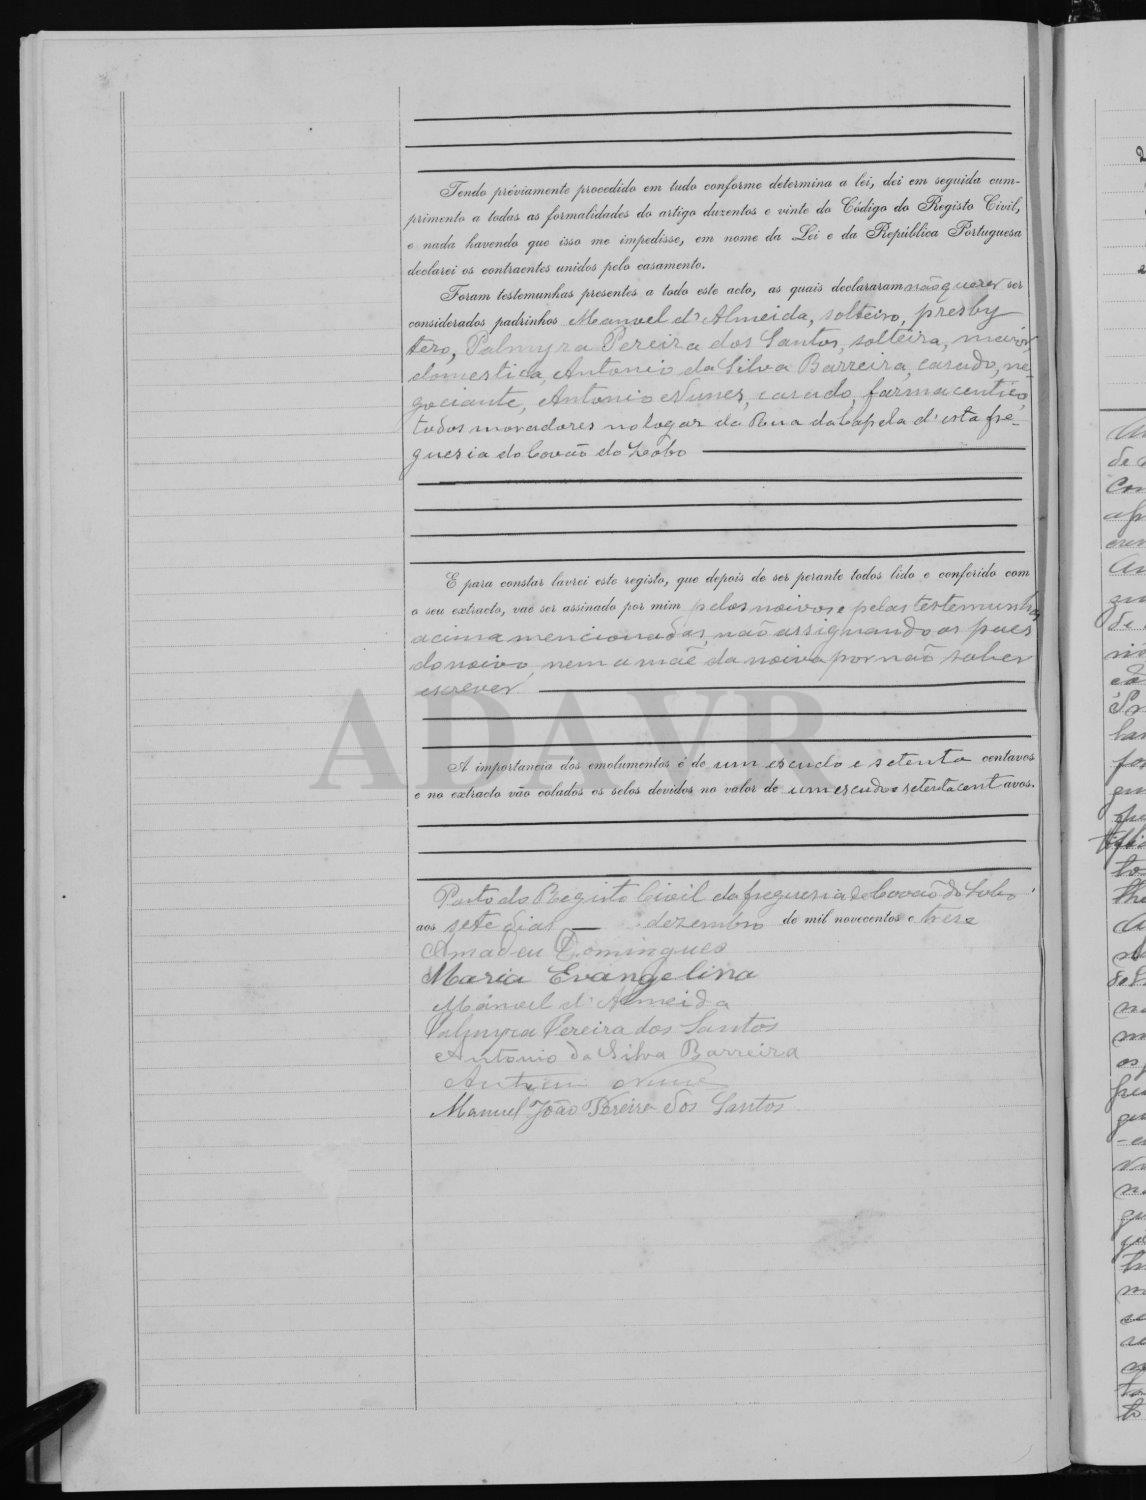 Tendo préviamente procedido em tudo conforme determina a lei, dei em seguida cum-
primento a todas as formalidades do artigo duzentos e vinte do Código do Registo Civil,
e nada havendo que isso me impedisse, em nome da Lei e da República Portuguesa
declarei os contraentes unidos pelo casamento.
Foram testemunhas presentes a todo este acto, as quais declararam não querer ser
considerados padrinhos Manuel d'Almeida, solteiro, presby
tero, Palmyra Pereira dos Santos, solteira, maior,
domestica, Antonio da Silva Barreira, casado, ne-
gociante, Antonio Nunes, casado, farmaceutico,
todos moradores no logar da Rua da Capela d'esta fre-
guesia do Covão do Lobo
E para constar lavrei este registo, que depois de ser perante todos lido e conferido com
o seu extracto, vae ser assinado por mim pelos noivos e pelas testemunhas
acima mencionadas, não assignando os paes
do noivo, nem a mãe da noiva por não saber
escrever.
ADAVR
A importancia dos emolumentos é de um escudo e setenta centavos
e no extracto vão colados os selos devidos no valor de um escudo e setenta centavos.
Posto do Registo Civil da freguesia de Covão do Lobo,
aos sete dias dezembro de mil novecentos e treze
Amadeu Domingues
Maria Evangelina
Manuel d'Almeida
Palmyra Pereira dos Santos
Antonio da Silva Barreira
Antonio Nunes
Manuel João Pereira dos Santos